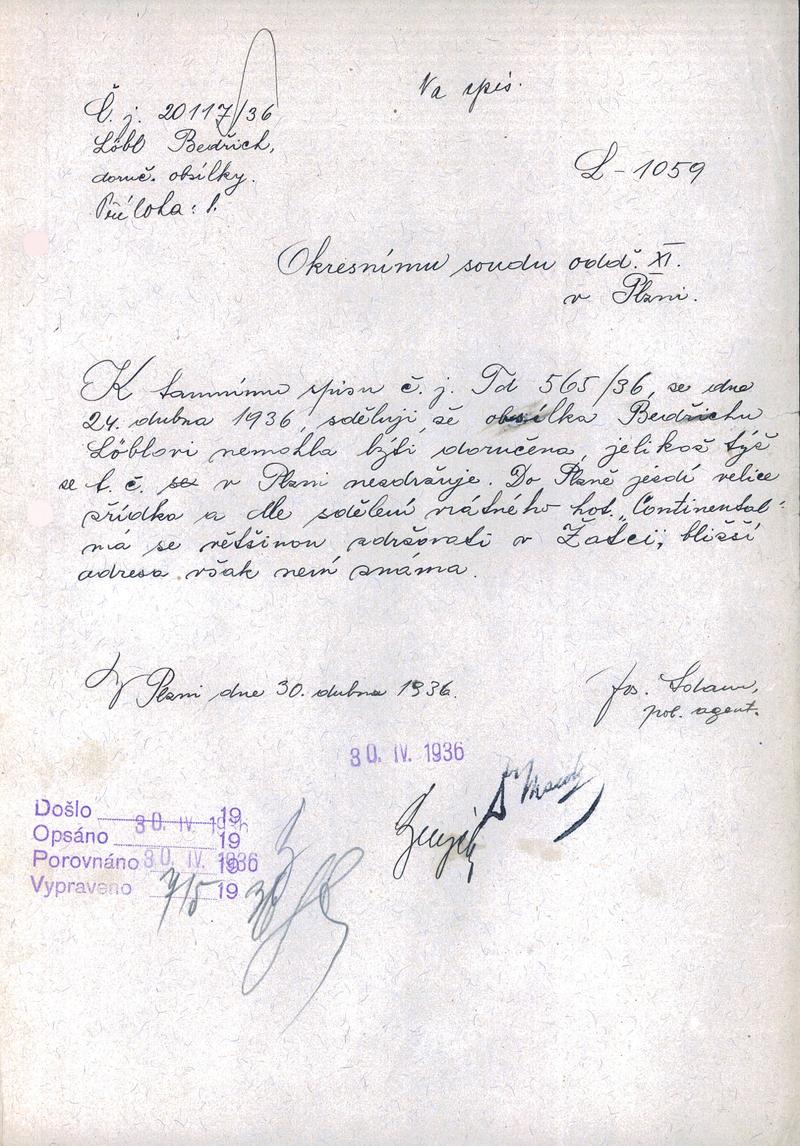 Na spis.
Č. j. 20117/36
Löbl Bedřich,
doruč. obsílky.
Příloha: 1.
L-1059
Okresnímu soudu odd. XI.
v Plzni.
K tamnímu spisu č. j. Td 565/36, se dne
24. dubna 1936, sděluji, že obsílka Bedřichu
Löblovi nemohla býti doručena, jelikož týž
se t. č. v Plzni nezdržuje. Do Plzně jezdí velice
zřídka a dle sdělení vrátného hot. „Continental"
má se většinou zdržovati v Žatci, bližší
adresa však není známa.
V Plzni dne 30. dubna 1936.
Jos. Adam,
pol. agent.
30. IV. 1936
Došlo 30. IV. 1936 19
Opsáno 19
Porovnáno 30. IV. 1936 19
Vypraveno 7/5 19 36